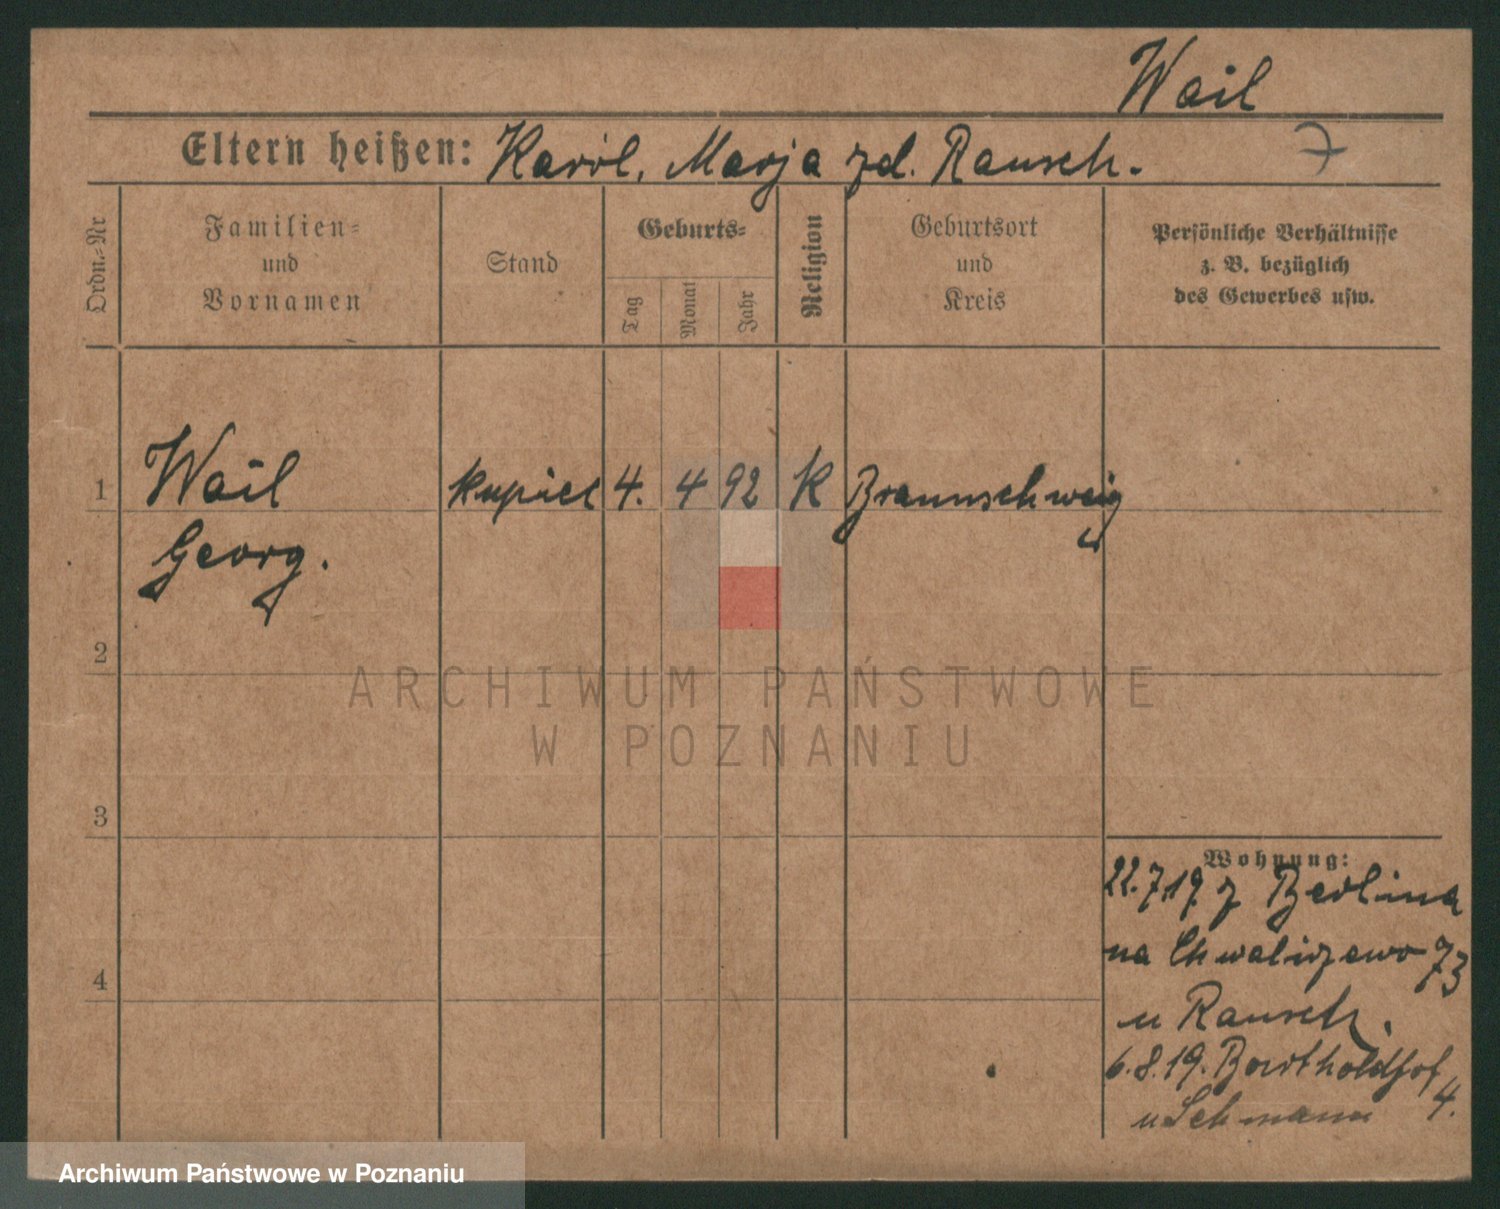 Wail
Eltern heißen: Karol, Marja zd. Rausch.
7
Ordn.-Nr
Familien- und Vornamen
Stand
Geburts-
Tag
Monat
Jahr
Religion
Geburtsort und Kreis
Persönliche Verhältnisse
z. B. bezüglich
des Gewerbes usw.
1 Wail kupiec 4. 4 92 K Braunschweig
Georg.
2
ARCHIWUM PAŃSTWOWE
W POZNANIU
3
Wohnung:
22.7.19. z Berlina
na Chwaliszewo 73
u Rausch.
4
6.8.19. Bartholdhof 4.
u Lehmann
Archiwum Państwowe w Poznaniu